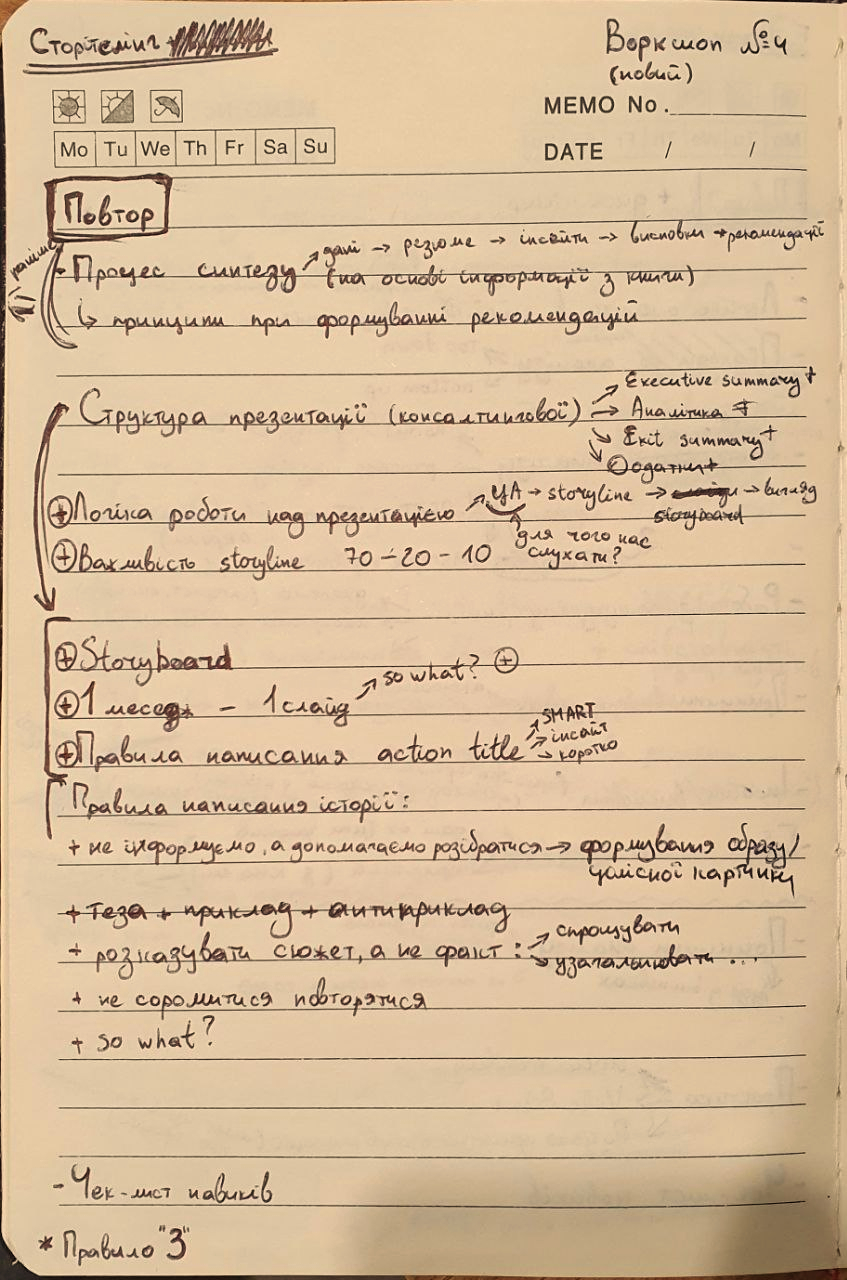 Сторітелінг
Воркшоп №4
(новий)
MEMO No.
Mo Tu We Th Fr Sa Su
DATE / /
Повтор
- Процес синтезу ↗ дані → резюме → інсайти → висновки → рекомендації
(на основі інформації з книги)
↳ принципи при формуванні рекомендацій
Структура презентації (консалтингової)
Executive summary +
Аналітика +
Exit summary +
Додатки +
⊕ Логіка роботи над презентацією ↗ ЦА → storyline → → вигляд
storyboard
для чого нас
слухати?
⊕ Важливість storyline 70 – 20 – 10
⊕ Storyboard
⊕ 1 меседж – 1 слайд ↗ so what? ⊕
⊕ Правила написання action title
SMART
інсайт
коротко
Правила написання історії:
+ не інформуємо, а допомагаємо розібратися → формування образу/
цілісної картинки
+ теза + приклад + антиприклад
+ розказувати сюжет, а не факт:
спрощувати
узагальнювати ...
+ не соромитися повторятися
+ so what?
- Чек-лист навиків
* Правило "3"